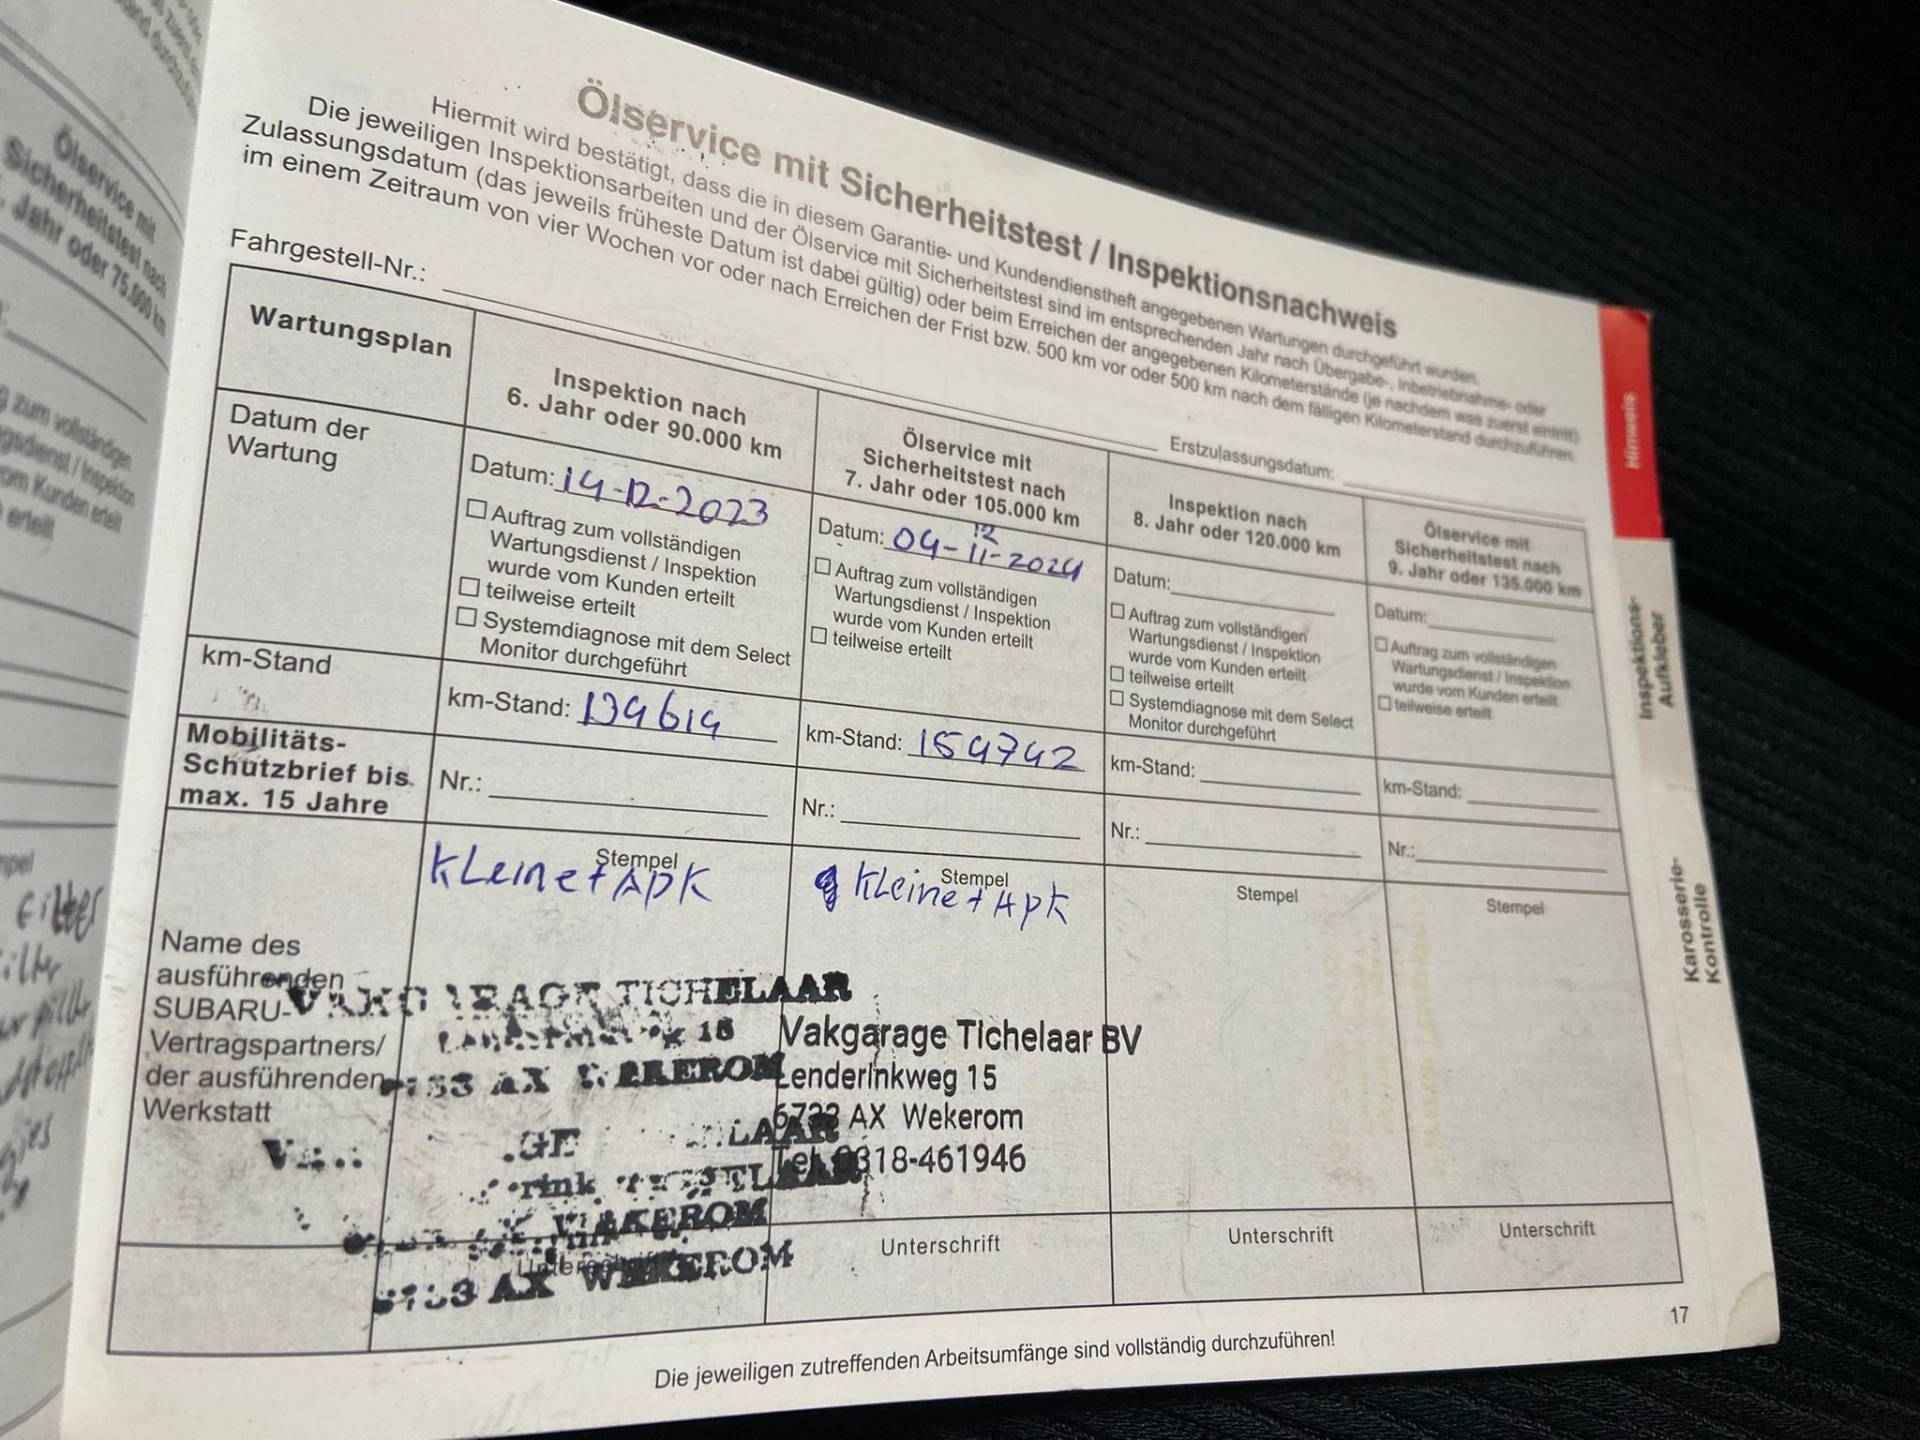 Ölservice mit Sicherheitstest / Inspektionsnachweis
Hiermit wird bestätigt, dass die in diesem Garantie- und Kundendienstheft angegebenen Wartungen durchgeführt wurden.
Die jeweiligen Inspektionsarbeiten und der Ölservice mit Sicherheitstest sind im entsprechenden Jahr nach Übergabe-, Inbetriebnahme- oder
Zulassungsdatum (das jeweils früheste Datum ist dabei gültig) oder beim Erreichen der angegebenen Kilometerstände (je nachdem was zuerst eintritt)
im einem Zeitraum von vier Wochen vor oder nach Erreichen der Frist bzw. 500 km vor oder 500 km nach dem fälligen Kilometerstand durchzuführen.
Fahrgestell-Nr.:
Erstzulassungsdatum:
Wartungsplan
Inspektion nach
6. Jahr oder 90.000 km
Ölservice mit
Sicherheitstest nach
7. Jahr oder 105.000 km
Inspektion nach
8. Jahr oder 120.000 km
Ölservice mit
Sicherheitstest nach
9. Jahr oder 135.000 km
Datum der
Wartung
Datum: 14-12-2023
Auftrag zum vollständigen
Wartungsdienst / Inspektion
wurde vom Kunden erteilt
teilweise erteilt
Systemdiagnose mit dem Select
Monitor durchgeführt
12
Datum: 04-11-2024
Auftrag zum vollständigen
Wartungsdienst / Inspektion
wurde vom Kunden erteilt
teilweise erteilt
Datum:
Auftrag zum vollständigen
Wartungsdienst / Inspektion
wurde vom Kunden erteilt
teilweise erteilt
Systemdiagnose mit dem Select
Monitor durchgeführt
Datum:
Auftrag zum vollständigen
Wartungsdienst / Inspektion
wurde vom Kunden erteilt
teilweise erteilt
km-Stand
km-Stand: 139619
km-Stand: 154742
km-Stand:
km-Stand:
Mobilitäts-
Schutzbrief bis
max. 15 Jahre
Nr.:
Nr.:
Nr.:
Nr.:
Name des
ausführenden
SUBARU-
Vertragspartners/
der ausführenden
Werkstatt
Stempel
Kleine + APK
TICHELAAR
AX
WEKEROM
AX WEKEROM
Unterschrift
Stempel
Kleine + Apk
Vakgarage Tichelaar BV
Lenderinkweg 15
6733 AX Wekerom
Tel. 0318-461946
Unterschrift
Stempel
Unterschrift
Stempel
Unterschrift
Die jeweiligen zutreffenden Arbeitsumfänge sind vollständig durchzuführen!
17
Hinweis
Inspektions-
Aufkleber
Karosserie-
Kontrolle
Ölservice mit
Sicherheitstest nach
Jahr oder 75.000 km
zum vollständigen
Inspektion
vom Kunden erteilt
erteilt
Filter